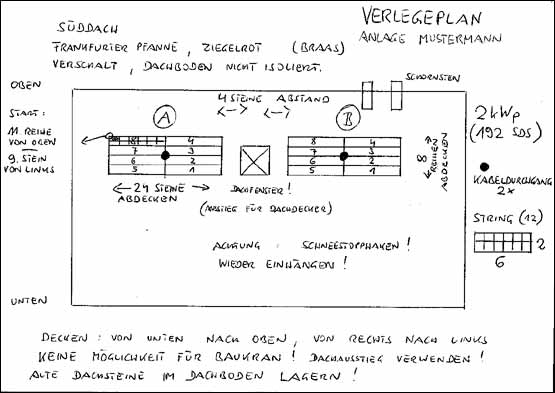 VERLEGEPLAN
ANLAGE MUSTERMANN
SÜDDACH
FRANKFURTER PFANNE, ZIEGELROT (BRAAS)
VERSCHALT, DACHBODEN NICHT ISOLIERT.
SCHORNSTEIN
OBEN
START:
11 REIHE
VON OBEN
9. STEIN
VON LINKS
A
4 STEINE ABSTAND
B
8 4
7 3
6 2
5 1
8 4
7 3
6 2
5 1
8 REIHEN
ABDECKEN
24 STEINE
ABDECKEN
DACHFENSTER!
(AUSTIEG FÜR DACHDECKER)
ACHTUNG: SCHNEESTOPHAKEN!
WIEDER EINHÄNGEN!
2 kWp
(192 SDS)
KABELDURCHGANG
2x
STRING (12)
2
6
UNTEN
DECKEN: VON UNTEN NACH OBEN, VON RECHTS NACH LINKS
KEINE MÖGLICHKEIT FÜR BAUKRAN! DACHAUSSTIEG VERWENDEN!
ALTE DACHSTEINE IM DACHBODEN LAGERN!